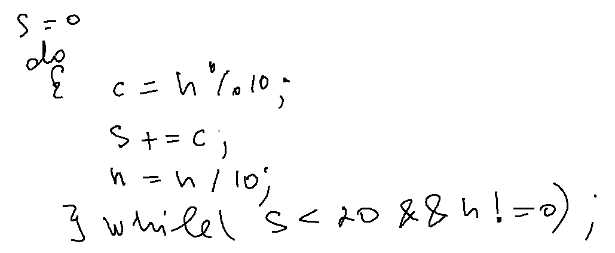 s = 0
do
{
c = n % 10;
s += c;
n = n / 10;
} while( s < 20 && n != 0);